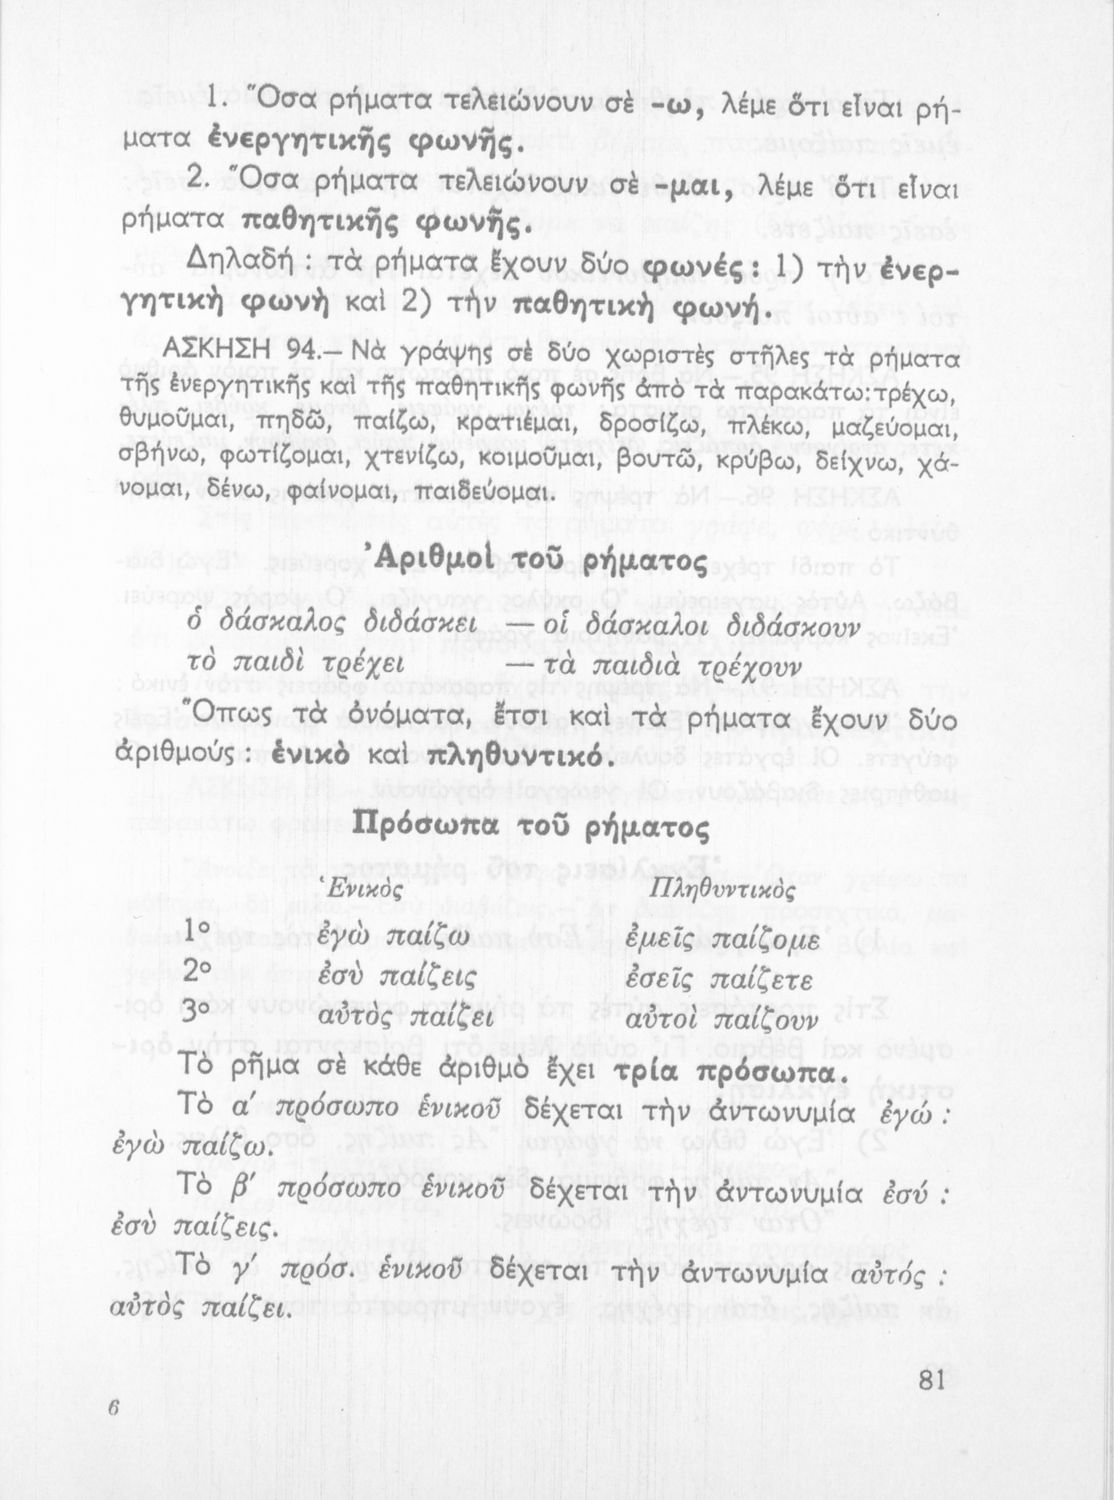 1. Ὅσα ρήματα τελειώνουν σὲ -ω, λέμε ὅτι εἶναι ρή-
ματα ἐνεργητικῆς φωνῆς.
2. Ὅσα ρήματα τελειώνουν σὲ -μαι, λέμε ὅτι εἶναι
ρήματα παθητικῆς φωνῆς.
Δηλαδή : τὰ ρήματα ἔχουν δύο φωνές : 1) τὴν ἐνερ-
γητικὴ φωνὴ καὶ 2) τὴν παθητικὴ φωνή.
ΑΣΚΗΣΗ 94.— Νὰ γράψης σὲ δύο χωριστὲς στῆλες τὰ ρήματα
τῆς ἐνεργητικῆς καὶ τῆς παθητικῆς φωνῆς ἀπὸ τὰ παρακάτω: τρέχω,
θυμοῦμαι, πηδῶ, παίζω, κρατιέμαι, δροσίζω, πλέκω, μαζεύομαι,
σβήνω, φωτίζομαι, χτενίζω, κοιμοῦμαι, βουτῶ, κρύβω, δείχνω, χά-
νομαι, δένω, φαίνομαι, παιδεύομαι.
Ἀριθμοὶ τοῦ ρήματος
ὁ δάσκαλος διδάσκει — οἱ δάσκαλοι διδάσκουν
τὸ παιδὶ τρέχει — τὰ παιδιὰ τρέχουν
Ὅπως τὰ ὀνόματα, ἔτσι καὶ τὰ ρήματα ἔχουν δύο
ἀριθμούς : ἑνικὸ καὶ πληθυντικό.
Πρόσωπα τοῦ ρήματος
Ἑνικὸς Πληθυντικὸς
1ο ἐγὼ παίζω ἐμεῖς παίζομε
2ο ἐσὺ παίζεις ἐσεῖς παίζετε
3ο αὐτὸς παίζει αὐτοὶ παίζουν
Τὸ ρῆμα σὲ κάθε ἀριθμὸ ἔχει τρία πρόσωπα.
Τὸ α′ πρόσωπο ἑνικοῦ δέχεται τὴν ἀντωνυμία ἐγώ :
ἐγὼ παίζω.
Τὸ β′ πρόσωπο ἑνικοῦ δέχεται τὴν ἀντωνυμία ἐσύ :
ἐσὺ παίζεις.
Τὸ γ′ πρόσ. ἑνικοῦ δέχεται τὴν ἀντωνυμία αὐτός :
αὐτὸς παίζει.
81
6